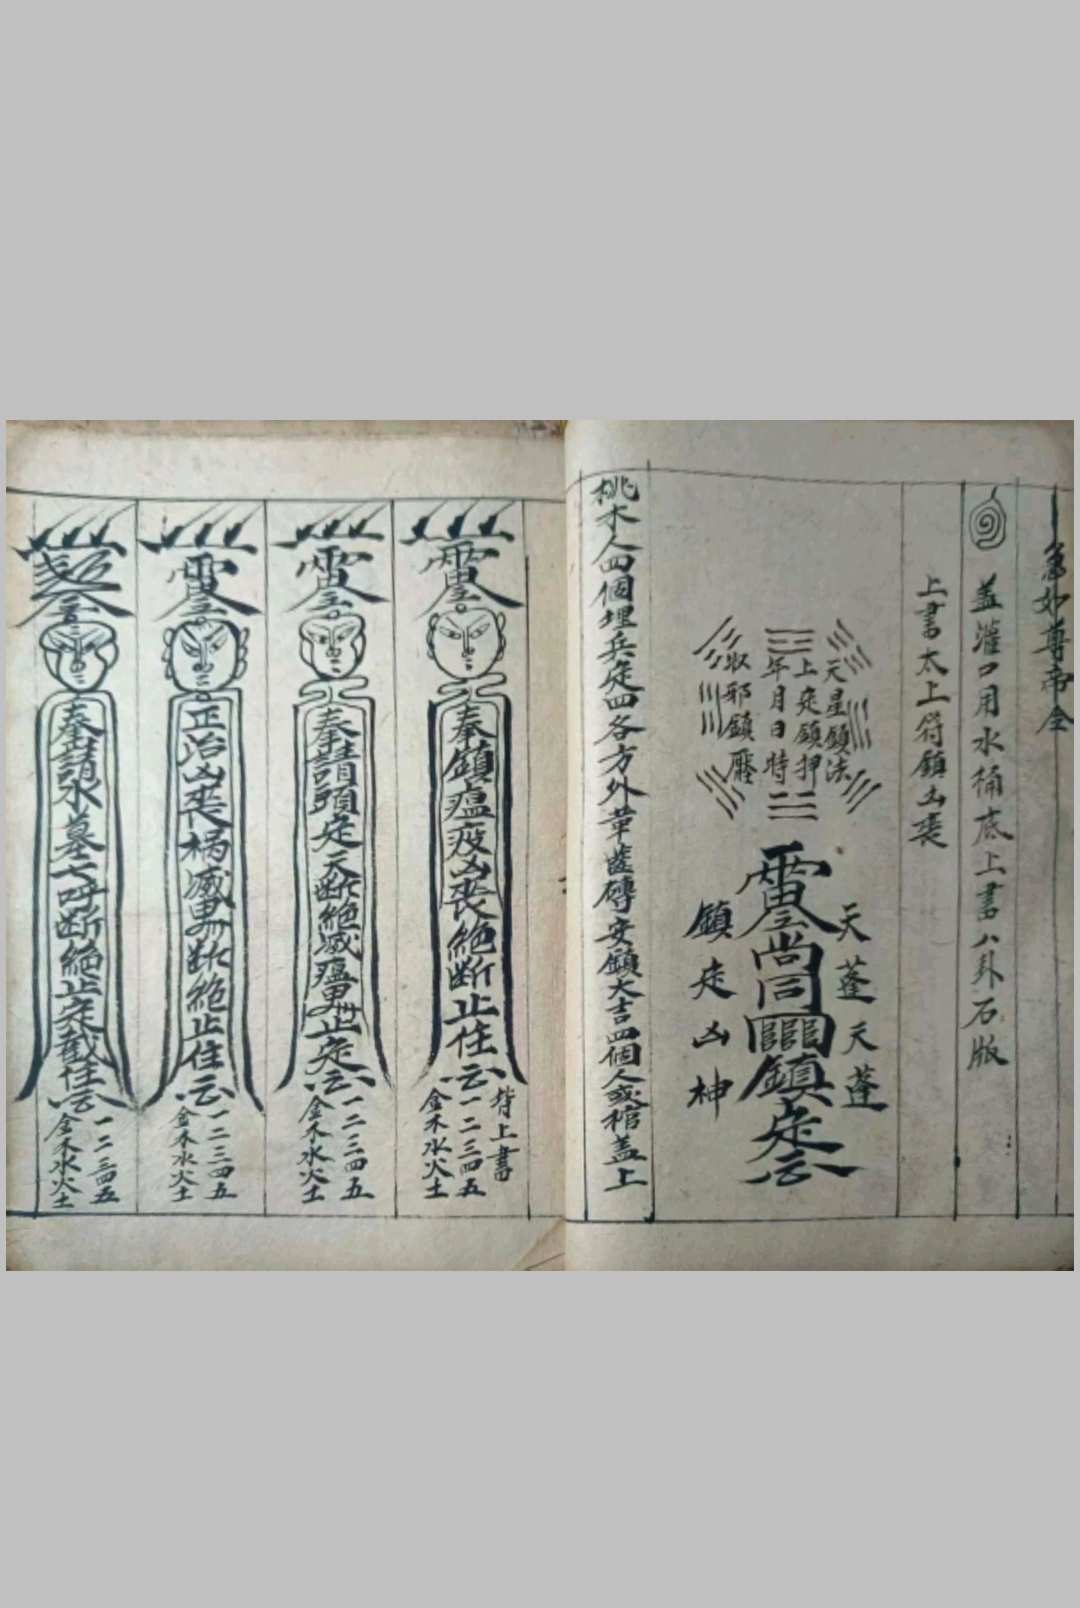 急妙尊帝全
盖灌口用水桶底上書八卦石版
上書太上符鎮凶喪
天星鎮法
上定鎮押
年月日時
収邪鎮
天蓬天蓬
尚同
鎮定
鎮定凶神
桃木人四個埋兵定四各方外華蓋磚安鎮大吉四個人或棺盖上
背上書
奉鎮瘟疫凶喪絶断止住
一二三四五
金木水火土
奉請頭定天断絶滅瘟
止定
一二三四五
金木水火土
正治凶喪禍滅
断絶止住
一二三四五
金木水火土
奉請水墓七呼断絶止定截住
一二三四五
金木水火土